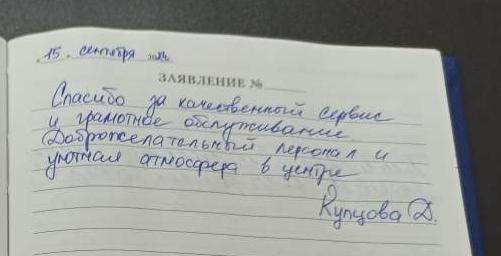 15 сентября 2024.
ЗАЯВЛЕНИЕ №
Спасибо за качественный сервис
и грамотное обслуживание
Доброжелательный персонал и
уютная атмосфера в центре
Купцова Д.